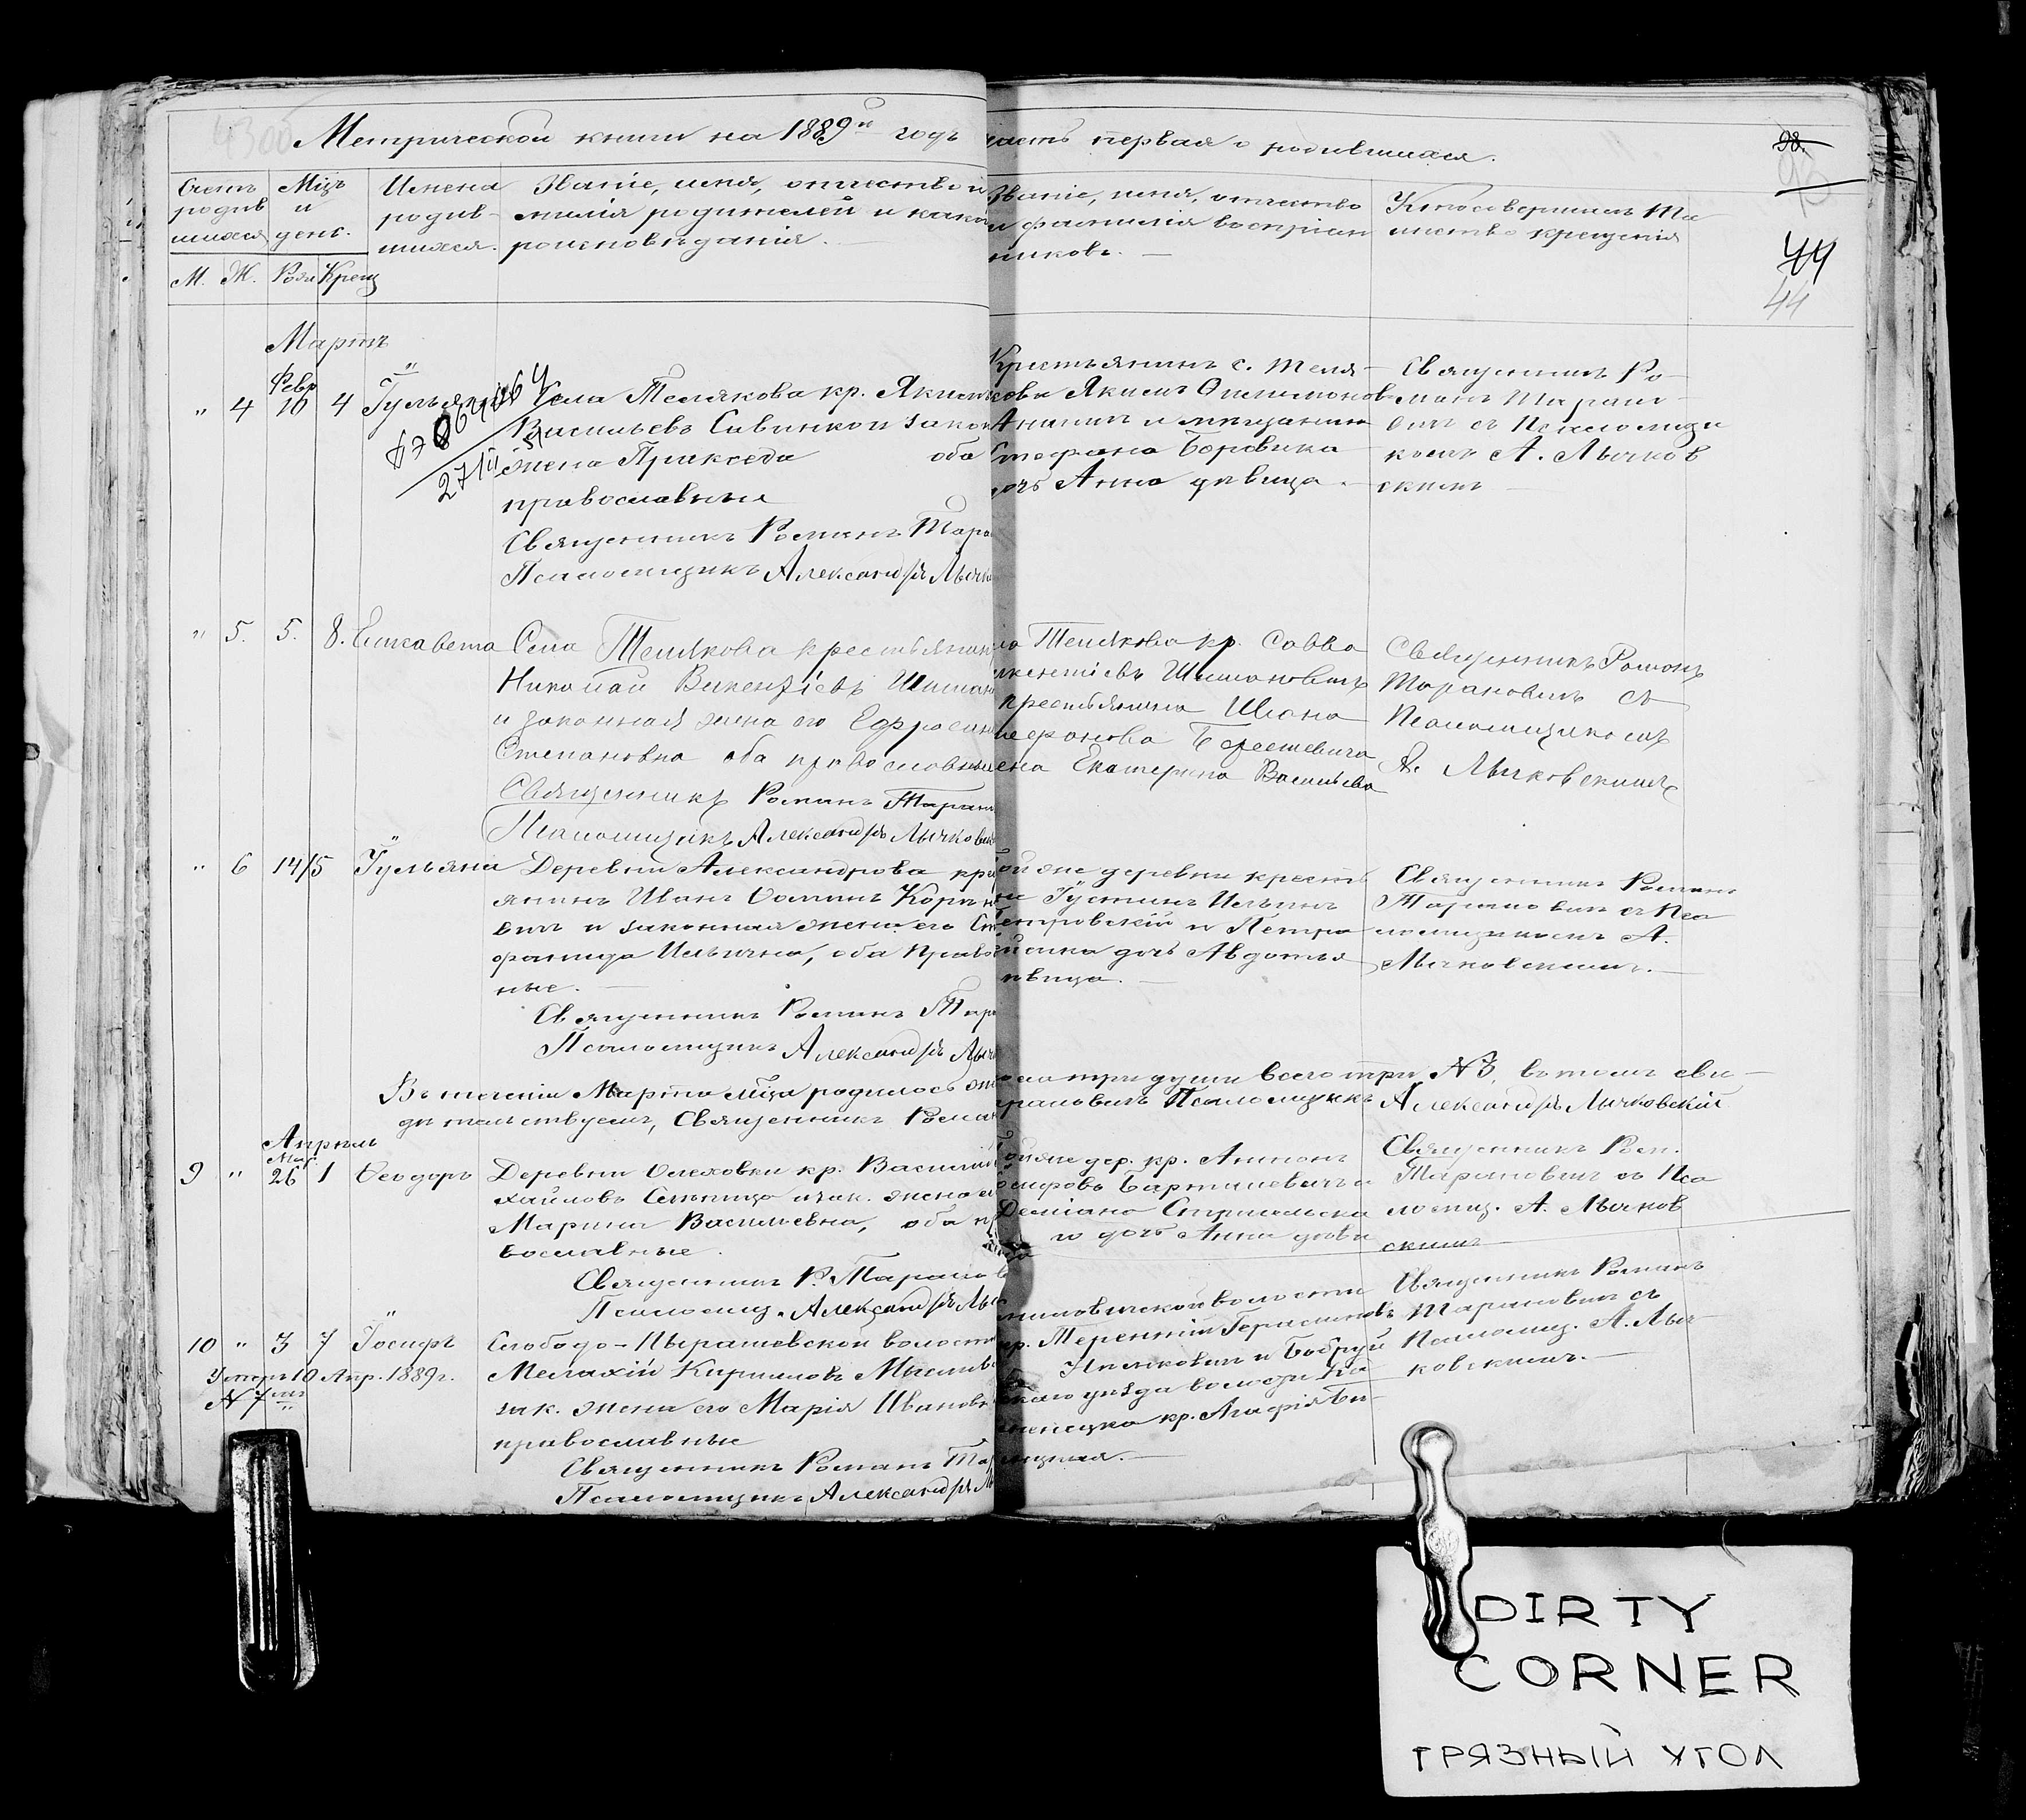 Метрической книги на 1889й годъ
часть первая о родившихся.
98.
44
44
Счетъ родив шихся
Мцъ и день.
Имена родив- шихся.
Званіе, имя, отчество и
милія родителей и како
роисповѣданія.
Званіе, имя, отчество
и фамилія воспріем
никовъ. —
Кто совершилъ Та
инство крещенія
М. Ж. Рож Крещ
Мартъ
Февр
" 4 10 4 Іульянія
27/II 51
Села Телякова кр. Яким
Васильевъ Савинкой закон
жена Пракседа оба
православные
Священникъ Романъ Тара
Псаломщикъ Александръ Лычко
Крестьянинъ с. Теля-
кова Якимъ
и мѣщанина
Стефана Боровика
дочь Анна дѣвица. —
Священникъ Ро-
манъ Таран-
вичъ съ Псаломщи
комъ А. Лычков
скимъ —
" 5. 5. 8. Елисавета
Села Телякова крестьянин
Николай Викентіевъ Шиман
и законная жена его Ефросин
Степановна оба православные
Священникъ Романъ Таран
Псаломщикъ Александръ Лычковск
ла Телякова кр. Савва
икентіевъ Шимановичъ
крестьянина
Берестевича
ена Екатерина Васильева
Священникъ Романъ
Тарановичъ съ
Псаломщикомъ
А. Лычковскимъ
" 6 14/5 Іульяна
Деревни Александрова кре
янинъ Иванъ Ооминъ Корын
вичъ и законная жена его Ст
фанида Ильична, оба Правос
ные. —
Священникъ Романъ Тар
Псаломщикъ Александръ Лыч
ой же деревни крестья
Іустинъ Ильинъ
етровскій и Петра
дочь Авдотья
ѣвица. —
Священникъ Романъ
Тарановичъ съ Пса
ломщикомъ А.
Лычковскимъ. —
Въ теченіи Марта мца родилось же
ска три души всего три №3, въ томъ сви —
дѣтельствуемъ, Священникъ Рома
арановичъ Псаломщикъ Александръ Лычковскій
Апрѣль
Мар.
9 " 26 1 Ѳеодоръ
Деревни Олеховки кр. Василій
хайловъ Сеница и зак. жена е
Марина Васильевна, оба п
вославные.
Священникъ Р. Таранов
Псаломщ. Александръ Лыч
ой же дер. кр. Антонъ
Бартишевичъ
Деміана
и дочь Анна дѣви
ца
Священникъ Ром.
Тарановичъ съ Пса
ломщ. А. Лычков
скимъ
10 " 3 7 Іосифъ
Умеръ 10 Апр. 1889г.
№ 7мъ
Слободо-Пырашевской волост
Малахій Кирилловъ Мысли
зак. жена его Марія Иванов
православные
Священникъ Романъ Тар
Псаломщикъ Александръ Л
волости
кр. Терентій Герасимовъ
и Бобруй
скаго уѣзда волости
кр. Агафія Би-
Священникъ Романъ
Тарановичъ съ
Псаломщ. А. Лыч
ковскимъ. —
DIRTY
CORNER
ГРЯЗНЫЙ УГОЛ